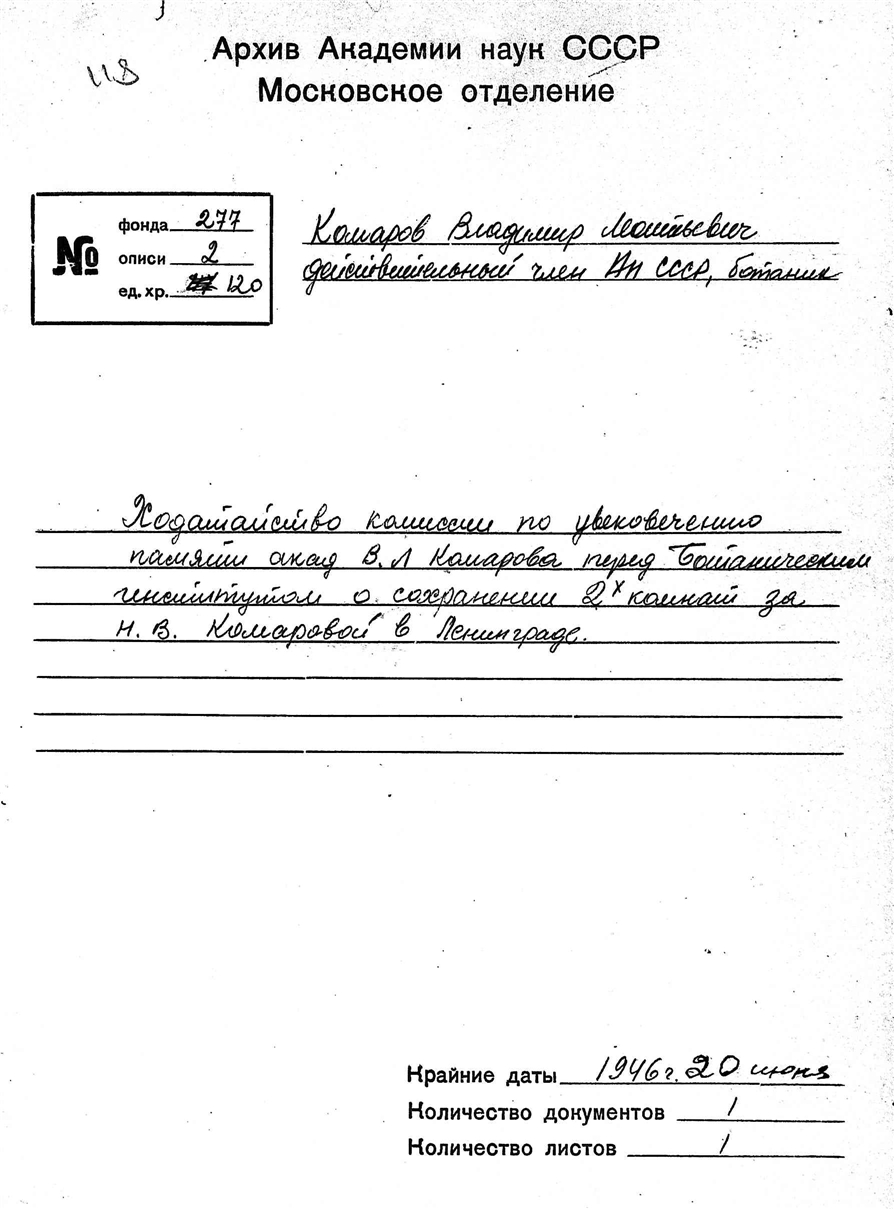 118
Архив Академии наук СССР
Московское отделение
№
фонда 277
описи 2
ед. хр. 120
Комаров Владимир Леонтьевич
действительный член АН СССР, ботаник
Ходатайство комиссии по увековечению
памяти акад В. Л Комарова перед Ботаническим
институтом о сохранении 2х комнат за
Н. В. Комаровой в Ленинграде.
Крайние даты 1946 г. 20 июня
Количество документов 1
Количество листов 1